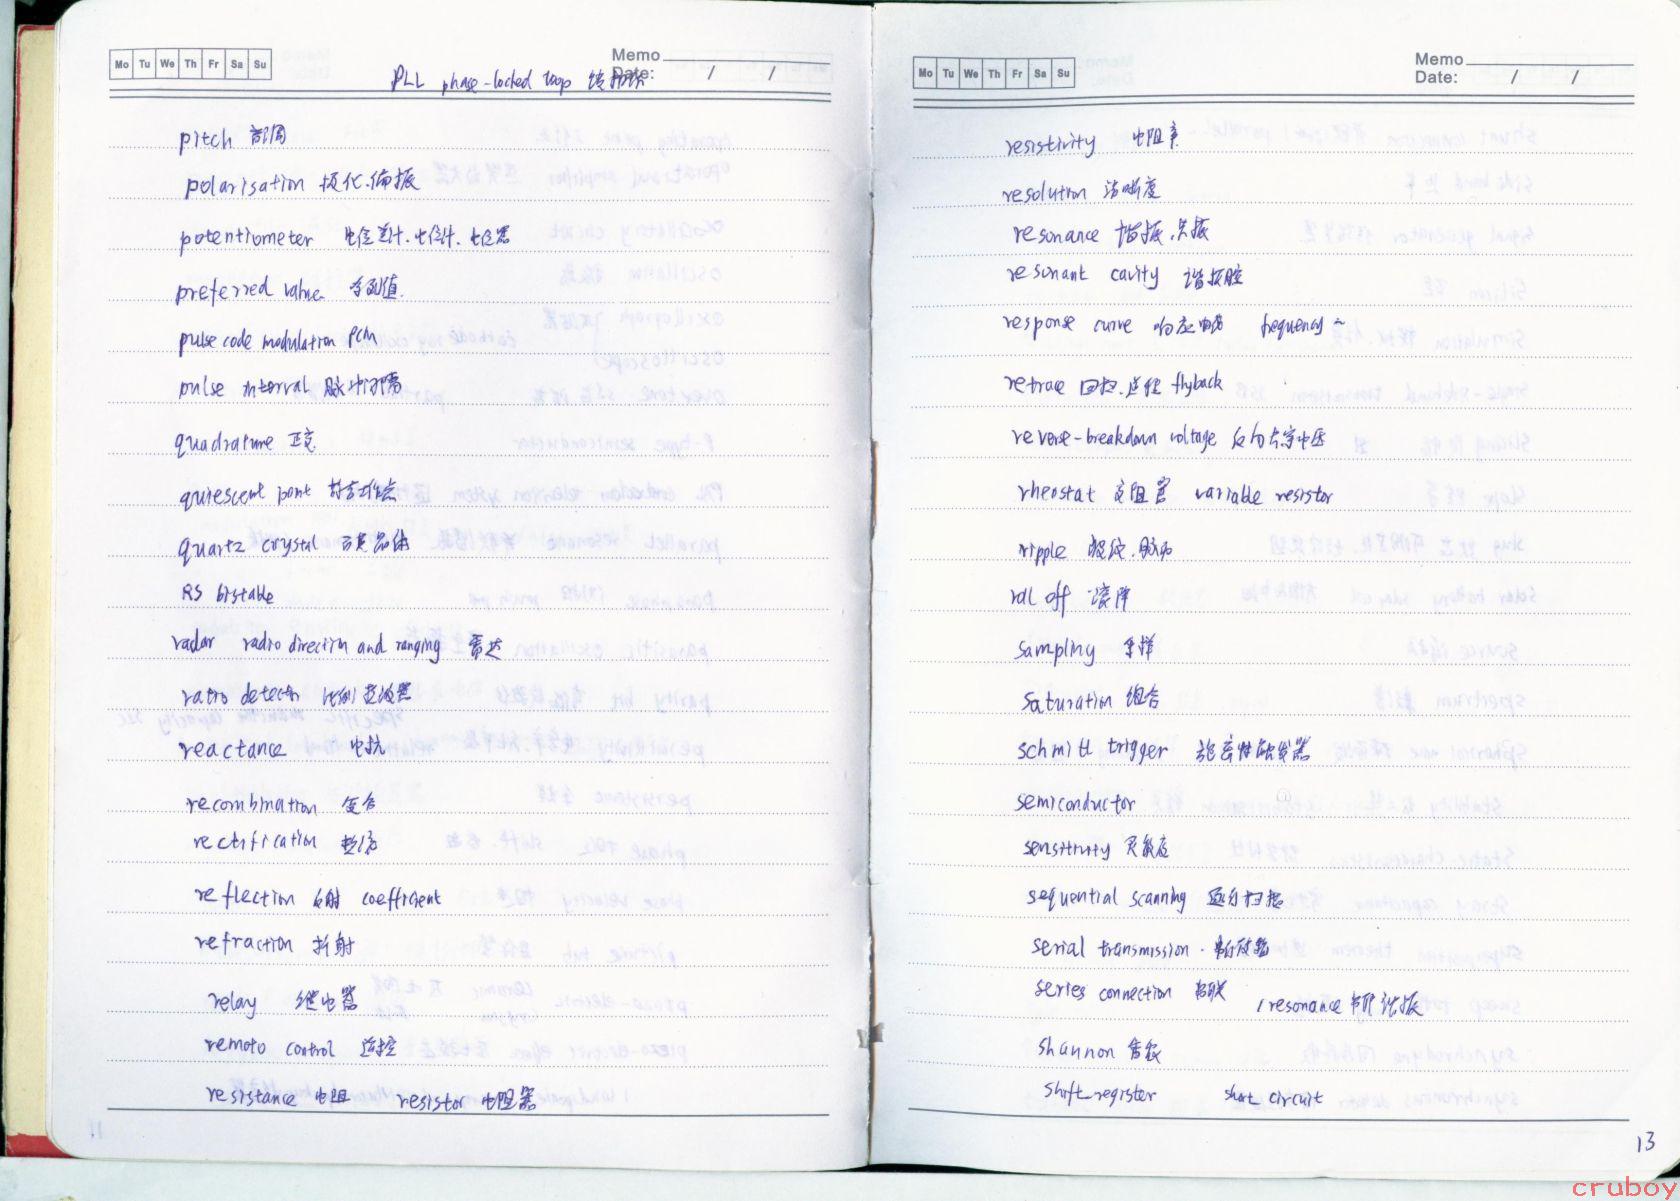 Mo Tu We Th Fr Sa Su
Memo
Date: / /
PLL phase-locked loop 锁相环
pitch 音调
polarisation 极化.偏振
potentiometer 电位差计.电位计.电位器
preferred value 系列值
pulse code modulation PCM
pulse interval 脉冲间隔
quadrature 正交
quiescent point 静态工作点
quartz crystal 石英晶体
RS bistable
radar radio direction and ranging 雷达
ratio detector 比例鉴波器
reactance 电抗
recombination 复合
rectification 整流
reflection 反射 coefficient
refraction 折射
relay 继电器
remoto control 遥控
resistance 电阻 resistor 电阻器
Mo Tu We Th Fr Sa Su
Memo
Date: / /
resistivity 电阻率
resolution 清晰度
resonance 谐振.共振
resonant cavity 谐振腔
response curve 响应曲线 frequency ~
retrace 回扫. flyback
reverse-breakdown voltage 反向击穿电压
rheostat 变阻器 variable resistor
ripple 波纹.脉动
roll off 滚降
sampling 采样
saturation 饱合
schmitt trigger 施密特触发器
semiconductor
sensitivity 灵敏度
sequential scanning 逐行扫描
serial transmission 串行传输
series connection 串联 / resonance 串联谐振
shannon 香农
shift-register short circuit
13
cruboy